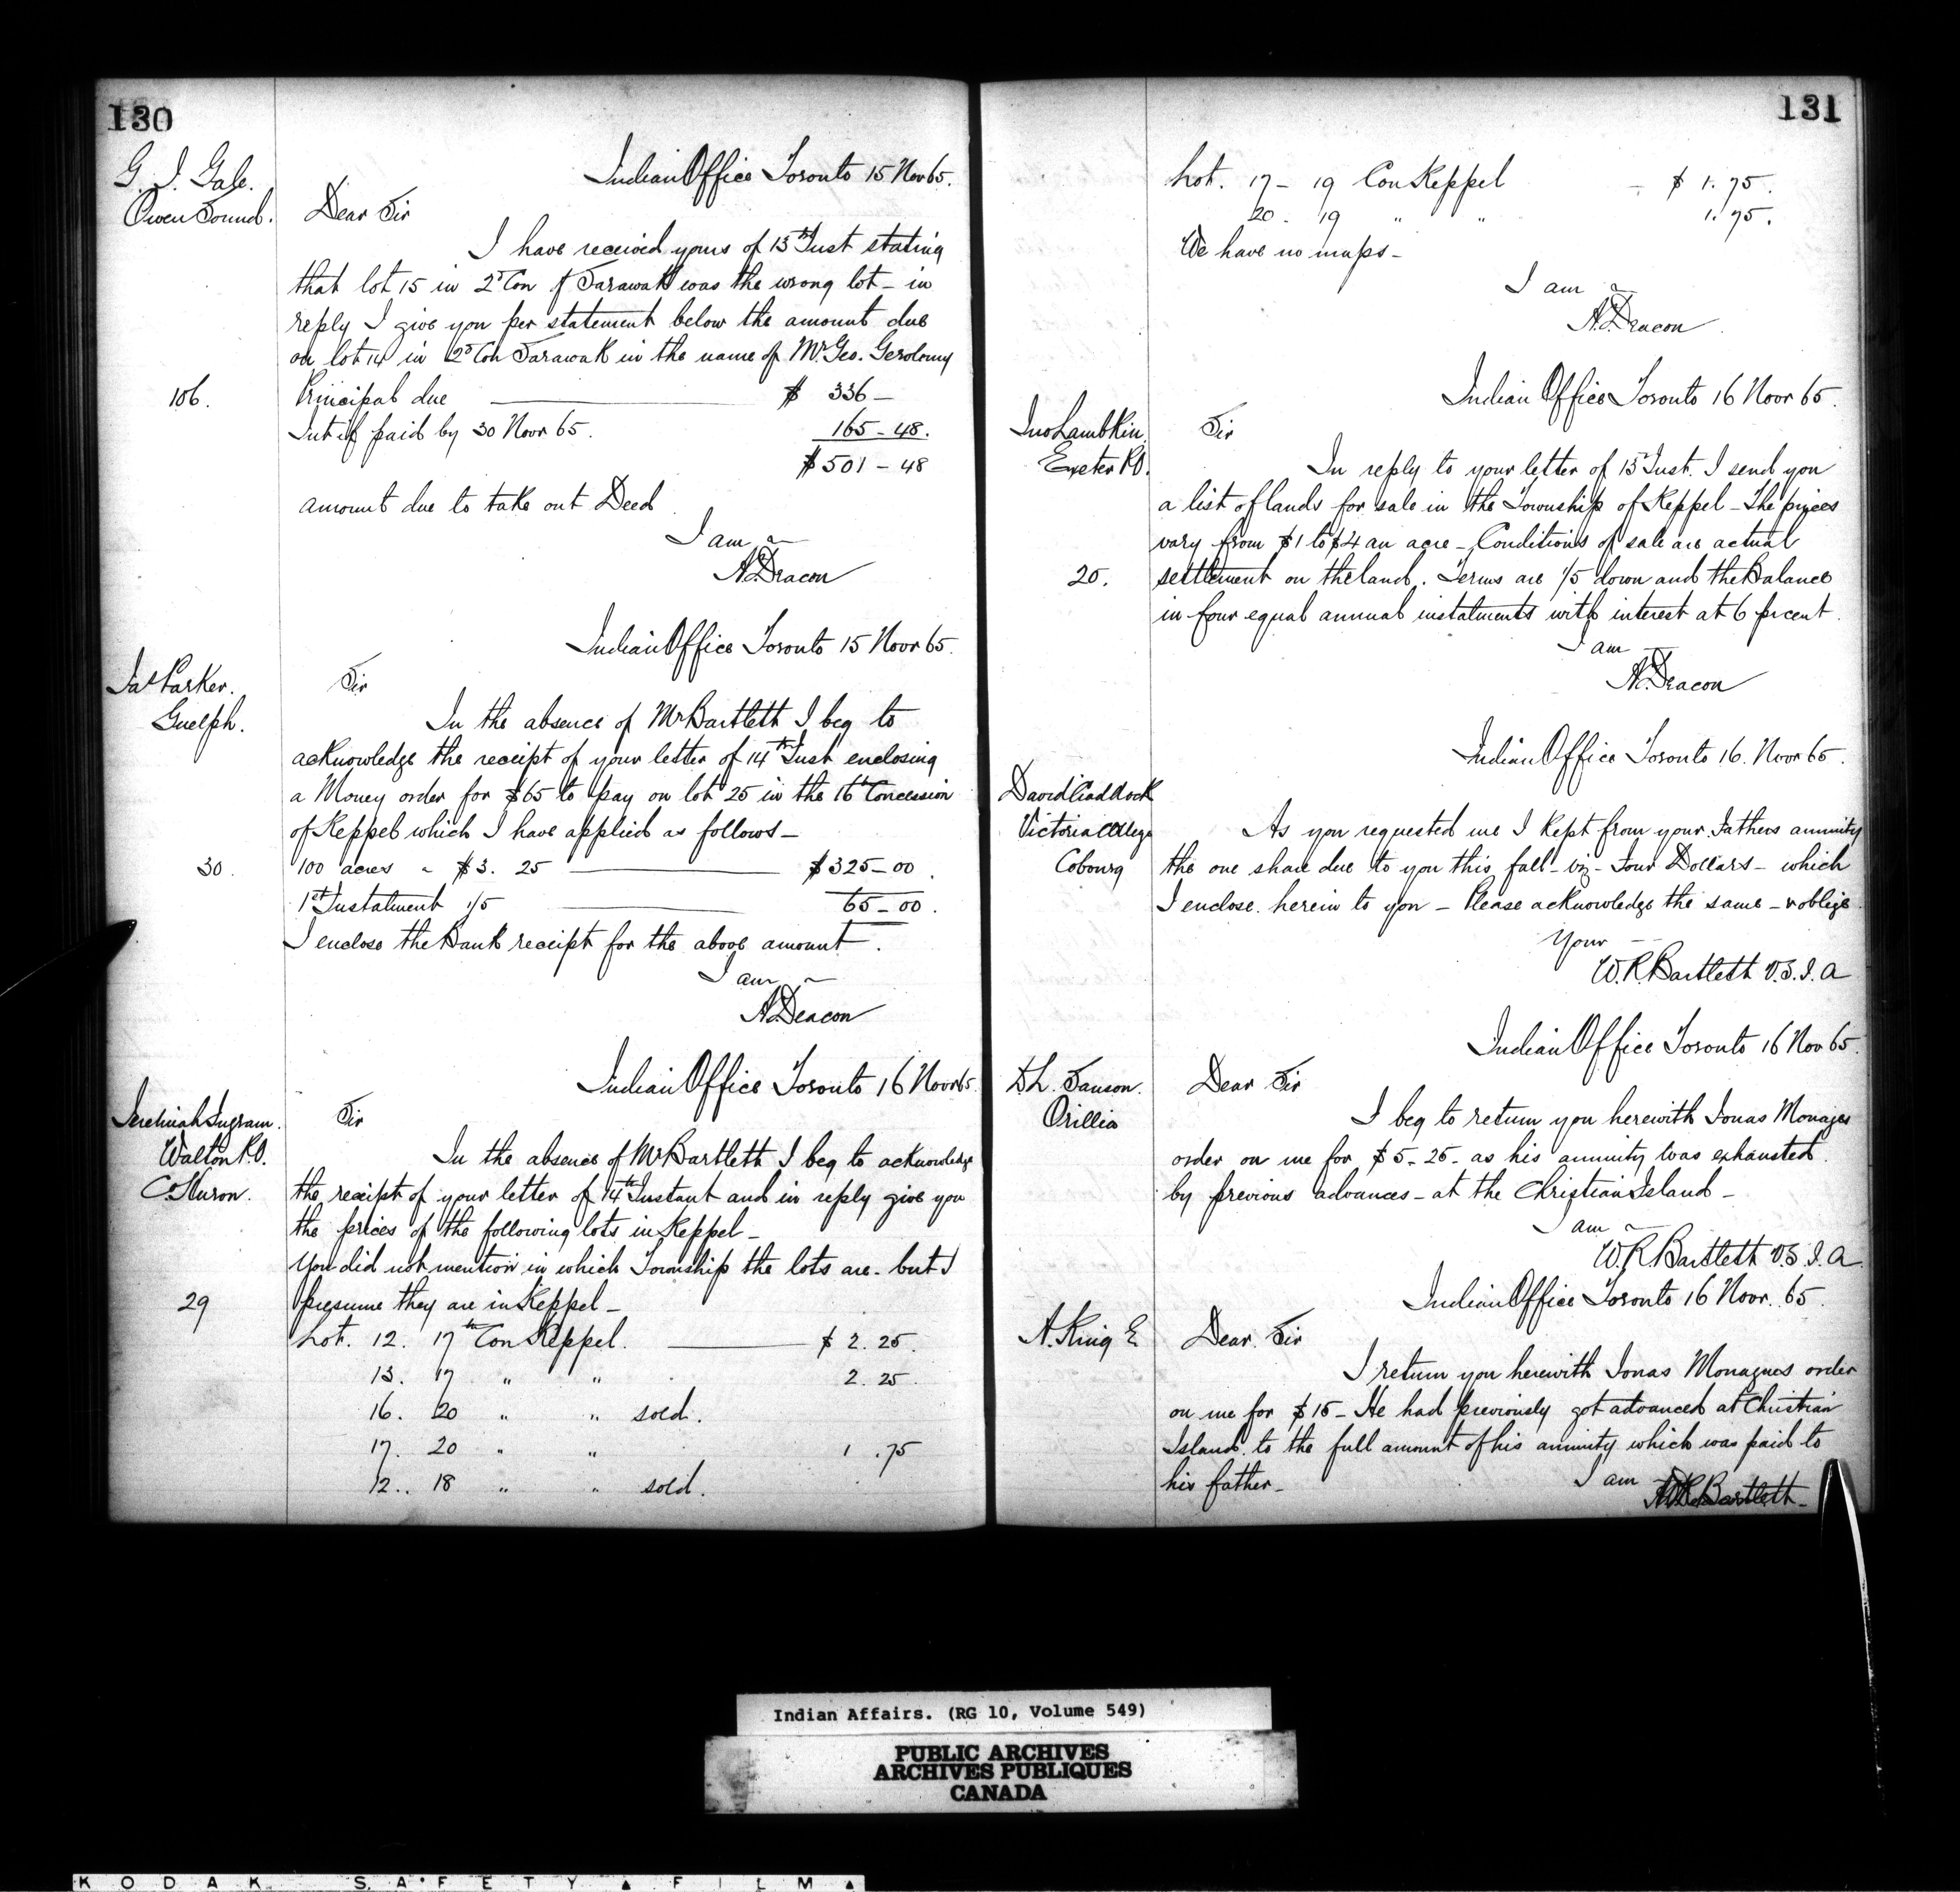 130
G. J. Gale.
Owen Sound.
Indian Office Toronto 15 Nov 65.
Dear Sir
I have received yours of 13th Inst stating
that lot 15 in 2d Con of Sarawak was the wrong lot - in
reply I give you per statement below the amount due
on lot 14 in 2d Con Sarawak in the name of Mr Geo. Gerolomy
106.
Principal due $ 336 -
Int if paid by 30 Novr 65. 165 - 48.
$ 501 - 48
amount due to take out Deed
I am
A. Deacon
Indian Office Toronto 15 Novr 65.
Jas Parker.
Guelph.
Sir
In the absence of Mr Bartlett I beg to
acknowledge the receipt of your letter of 14th Inst enclosing
a Money order for $65 to pay on lot 25 in the 16th Concession
of Keppel which I have applied as follows -
30
100 acres $3. 25 $325 - 00.
1st Instalment 1/5 65 - 00.
I enclose the Bank receipt for the above amount.
I am
A. Deacon
Indian Office Toronto 16 Novr 65
Jeremiah Ingram.
Walton P.O.
Co Huron.
Sir
In the absence of Mr Bartlett I beg to acknowledge
the receipt of your letter of 14th Instant and in reply give you
the prices of the following lots in Keppel -
You did not mention in which Township the lots are - but I
29
presume they are in Keppel -
Lot. 12. 17th Con Keppel. $ 2. 25.
13. 17 " " 2. 25.
16. 20 " " sold.
17. 20 " " 1 .75
12.. 18 " " sold.
131
Lot. 17 - 19 Con Keppel - $ 1. 75.
20 - 19 " " 1. 75.
We have no maps -
I am
A. Deacon
Indian Office Toronto 16 Novr 65.
Jno Lambkin.
Exeter P.O.
Sir
In reply to your letter of 15 Inst. I send you
a list of lands for sale in the Township of Keppel - The prices
vary from $1 to $4 an acre - Conditions of sale are actual
20.
settlement on the land. Terms are 1/5 down and the Balance
in four equal annual instalments with interest at 6 prcent.
I am
A. Deacon
Indian Office Toronto 16. Novr 65.
David Craddock
Victoria College
Cobourg
As you requested me I kept from your Fathers annuity
the one share due to you this fall - viz - Four Dollars - which
I enclose. herein to you - Please acknowledge the same - & oblige
Your
W. R. Bartlett V.S.I.A
Indian Office Toronto 16 Nov 65.
D L. Sanson.
Orillia
Dear Sir
I beg to return you herewith Jonas Monages
order on me for $ 5 - 25 - as his annuity was exhausted
by previous advances - at the Christian Island -
I am
W. R Bartlett V.S.I.A.
Indian Office Toronto 16 Novr. 65.
A. King E
Dear. Sir
I return you herewith Jonas Monagues order
on me for $ 15 - He had previously got advanced at Christian
Island. to the full amount of his annuity which was paid to
his father -
I am
W R Bartlett -
Indian Affairs. (RG 10, Volume 549)
PUBLIC ARCHIVES
ARCHIVES PUBLIQUES
CANADA
KODAK SAFETY FILM